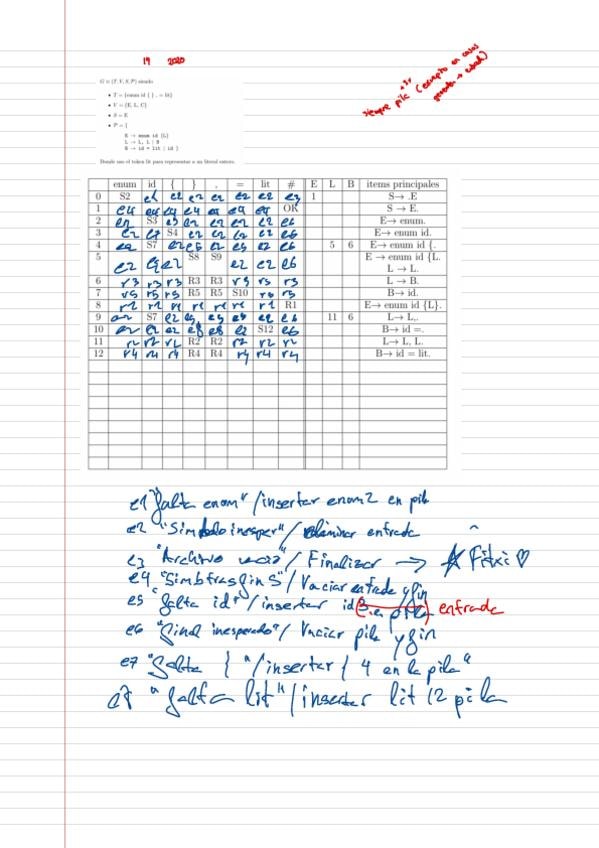 19 2020
siempre pila (excepto en casos
G = (T, V, S, P) siendo
• T = {enum id { } , = lit}
• V = {E, L, C}
• S = E
• P = {
E → enum id {L}
L → L, L | B
B → id = lit | id }
Donde uso el token lit para representar a un literal entero.
enum id { } , = lit # E L B items principales
0 S2 e1 e2 e2 e2 e2 e2 e3 1 S→ .E
1 e4 e4 e4 e4 e4 e4 e4 OK S → E.
2 S3 e2 e2 e2 e2 e6 E→ enum.
3 e2 e7 S4 e2 e2 e2 e2 e6 E→ enum id.
4 S7 e2 e5 e2 e5 e2 e6 5 6 E→ enum id {.
5 e2 e2 S8 S9 e2 e2 e6 E → enum id {L.
L → L.
6 r3 r3 r3 R3 R3 r3 r3 r3 L → B.
7 r5 r5 r5 R5 R5 S10 r5 r5 B→ id.
8 r1 r1 r1 r1 r1 r1 r1 R1 E→ enum id {L}.
9 S7 e2 e5 e2 e6 11 6 L→ L,.
10 e2 e2 e8 e8 e2 S12 e6 B→ id =.
11 r2 r2 r2 R2 R2 r2 r2 r2 L→ L, L.
12 r4 r4 r4 R4 R4 r4 r4 r4 B→ id = lit.
e1 "falta enum" / insertar enum 2 en pila
e2 "Simbolo inesper" / eliminar entrada
e3 "Archivo vacio" / Finalizar → ☆ Fitxi ♡
e4 "Simb tras fin S" / Vaciar entrada y fin
e5 "falta id" / insertar id (3 en pila) entrada
e6 "final inesperado" / Vaciar pila y fin
e7 "falta { " / insertar { 4 en la pila"
e8 "falta lit" / insertar lit 12 pila